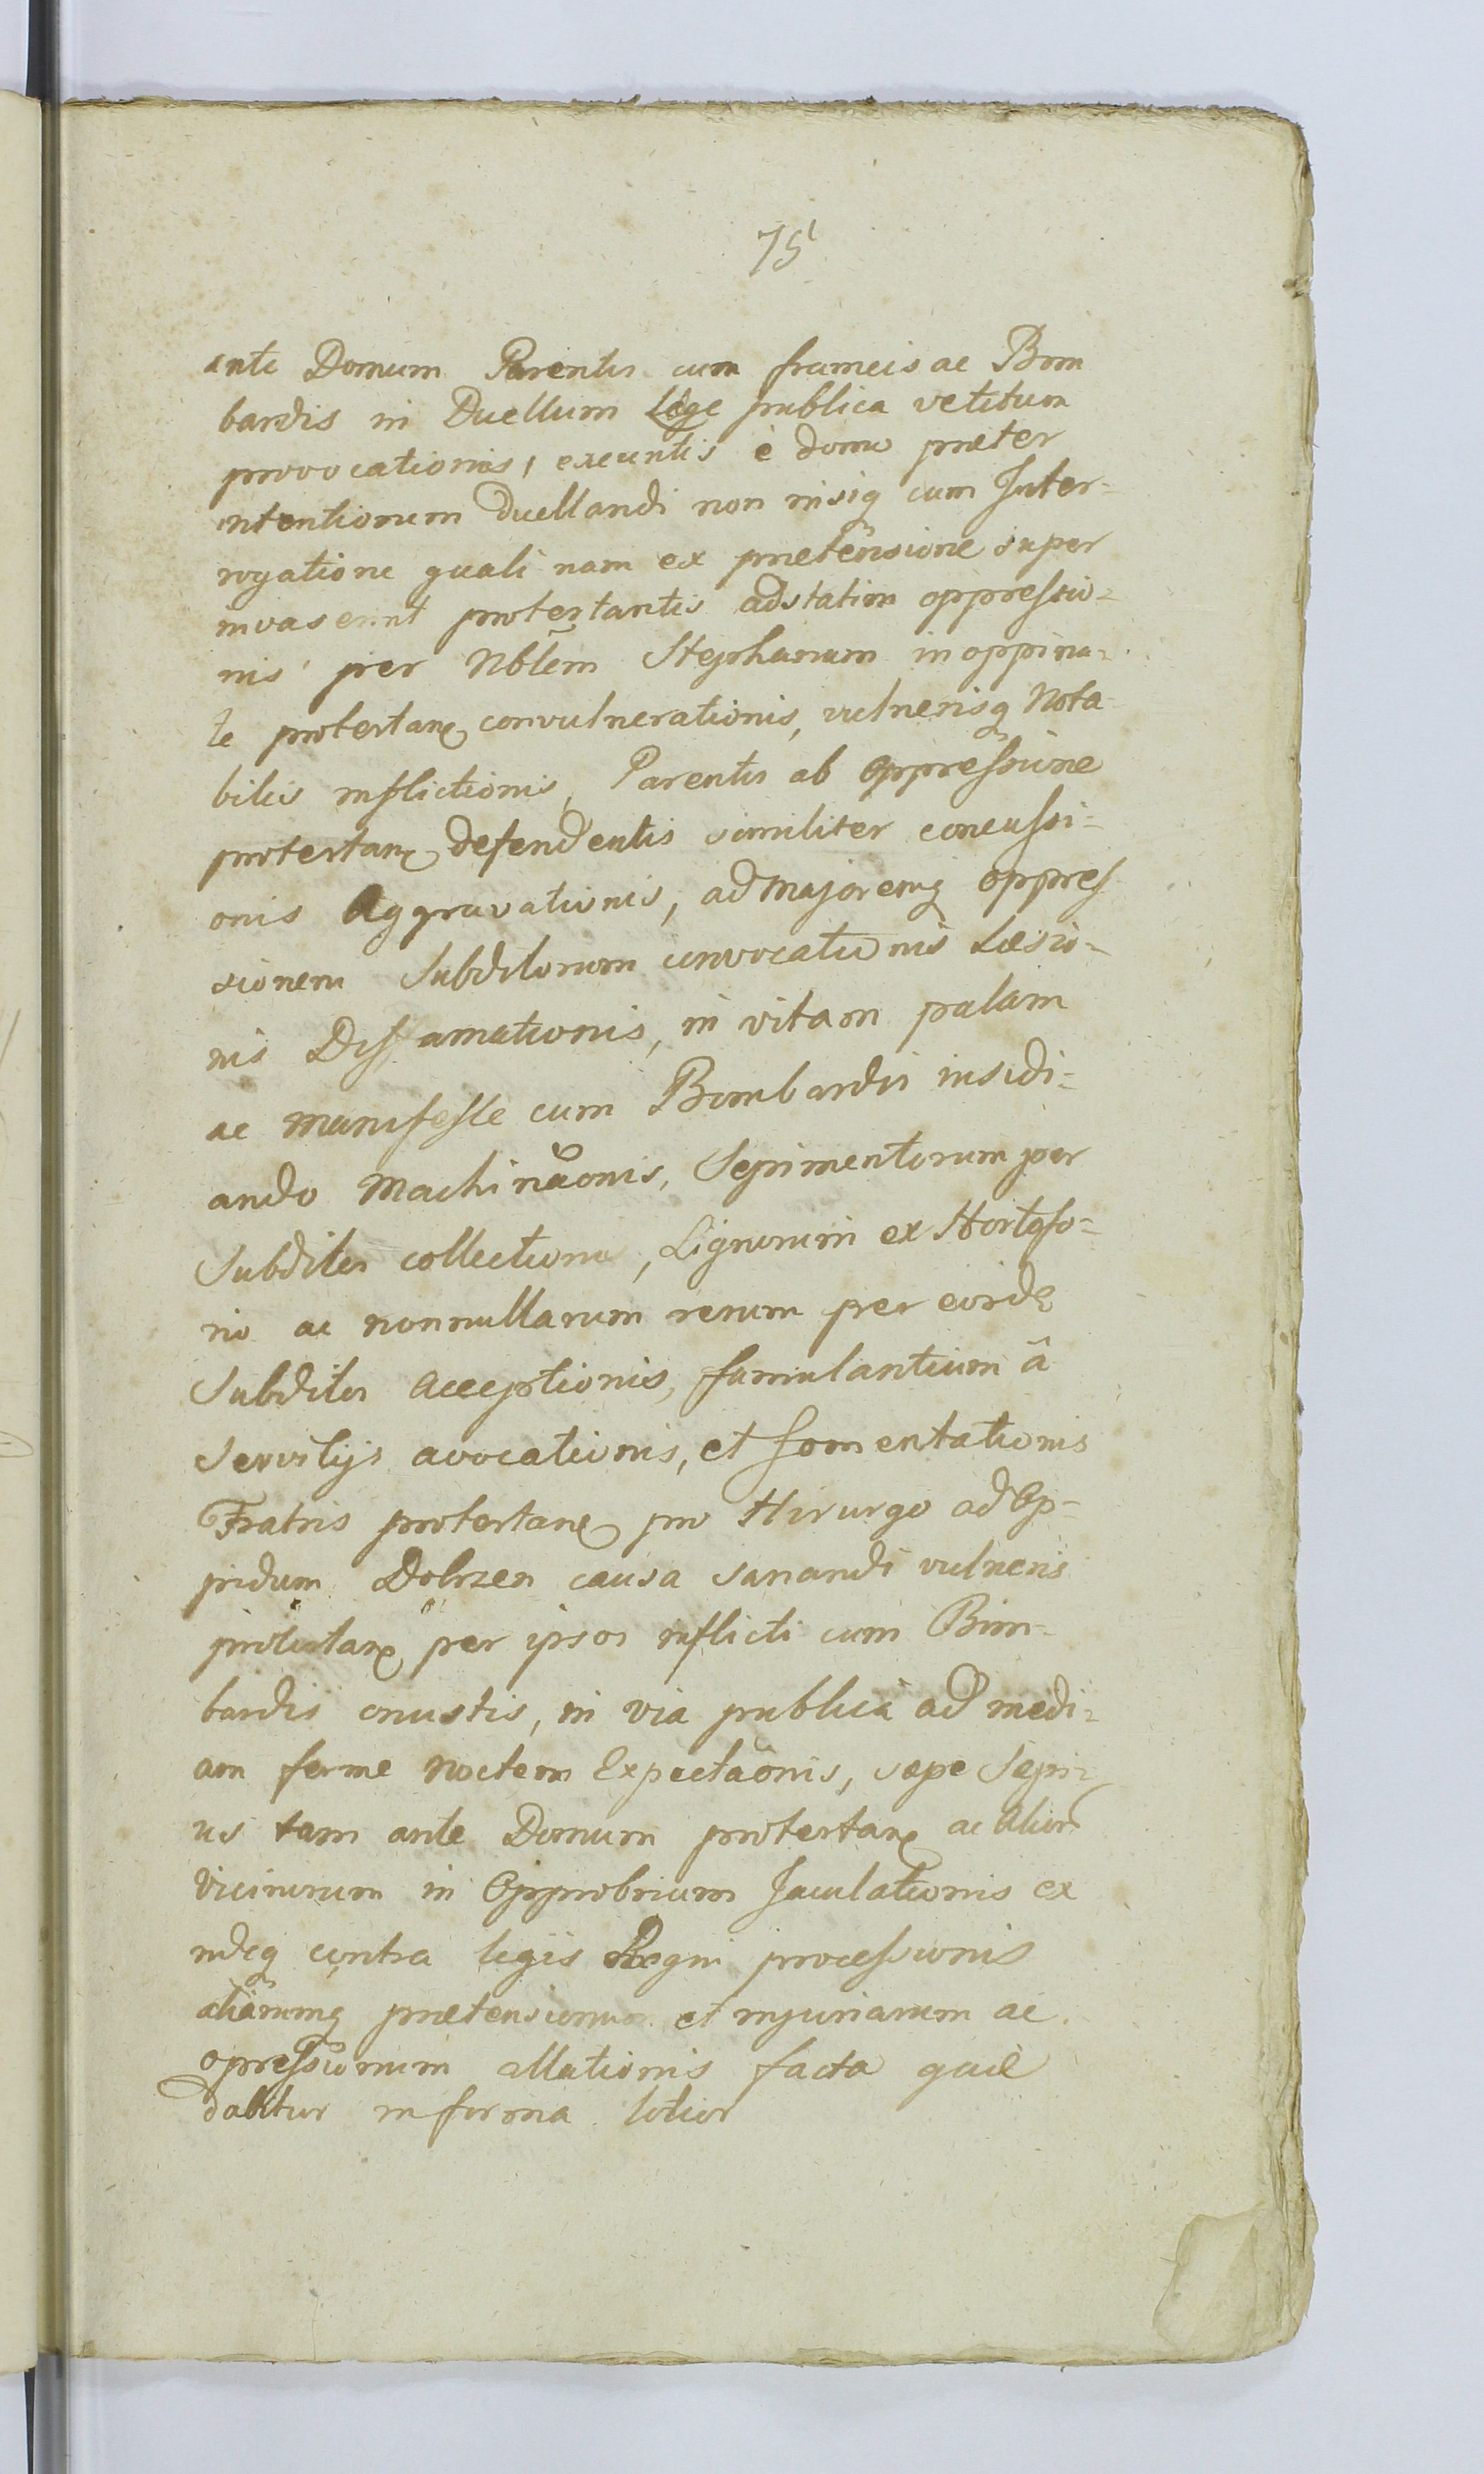 75
ante Domum Parentis cum frameis ac Bom
bardis in Duellum Lege publica vetitum
provocationis, exeuntis è domo præter
intentionem Duellandi non nisiq cum Inter-
rogatione quali nam ex prætensione super
invaserint protestantis adstatim oppressio-
nis per Nblem Stephanum inoppina-
te protestan convulnerationis, vulnerisq Nota
bilis inflictionis, Parentis ab oppressione
protestan defendentis similiter concussi-
onis Aggravationis, ad majoremq oppres
sionem Subditorum convocationis Læsio-
nis Diffamationis, in vitam palam
ac manifeste cum Bombardis insidi-
ando Machinaonis, Sepimentorum per
Subditos collectionis, Lignorum ex
ac nonnullarum rerum per eosd
Subditos acceptionis, famulantium â
servitijs avocationis, et fomentationis
Fratris protestan pro Hirurgo ad Op-
pidum Dobrzen causa sanandi vulneris
protestan per ipsos inflicti cum Bom-
bardis onustis, in via publica ad medi-
am ferme noctem Expectaonis, sæpe Sæpi-
us tam ante Domum protestan ac alior
vicinorum in Opprobrium Jaculationis ex
indeq contra legis Regni processionis
aliarumq prætensionum et injuriarum ac
opressionum allationis facta quæ
dabitur in forma lotior